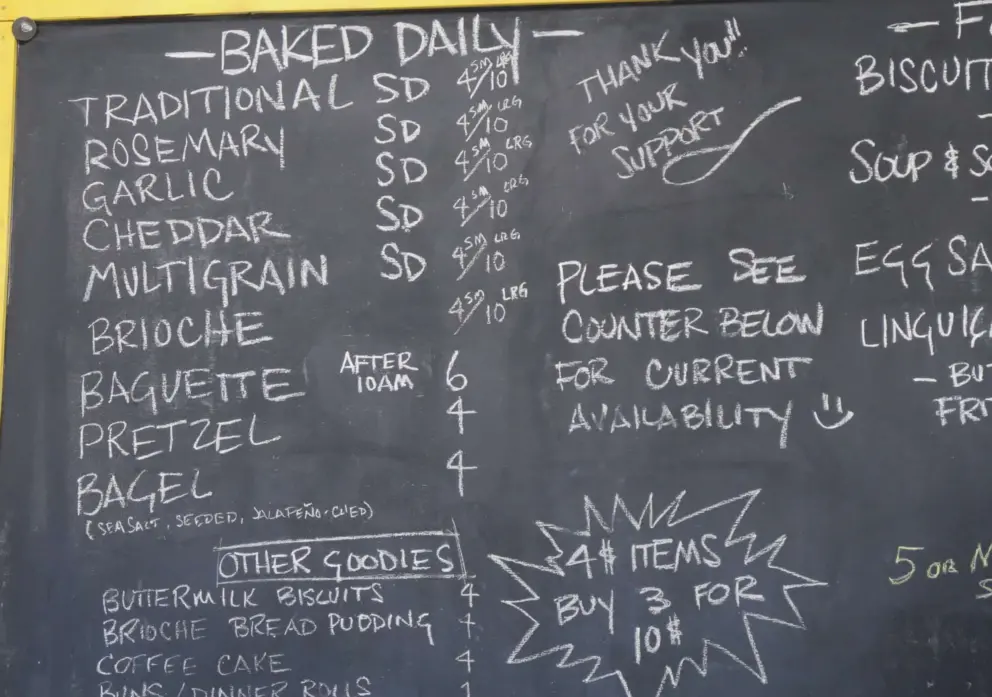 — BAKED DAILY —
TRADITIONAL SD 4SM/10LRG
ROSEMARY SD 4SM/10LRG
GARLIC SD 4SM/10LRG
CHEDDAR SD 4SM/10LRG
MULTIGRAIN SD 4SM/10LRG
BRIOCHE 4SM/10LRG
BAGUETTE AFTER 10AM 6
PRETZEL 4
BAGEL 4
(SEA SALT, SEEDED, JALAPEÑO-CHED)
OTHER GOODIES
BUTTERMILK BISCUITS 4
BRIOCHE BREAD PUDDING 4
COFFEE CAKE 4
BUNS/DINNER ROLLS 1
THANK YOU!!!
FOR YOUR
SUPPORT
PLEASE SEE
COUNTER BELOW
FOR CURRENT
AVAILABILITY
4$ ITEMS
BUY 3 FOR
10$
— F
BISCUIT
SOUP & S
EGG SA
LINGUIÇ
- BU
FRI
5 OR M
S